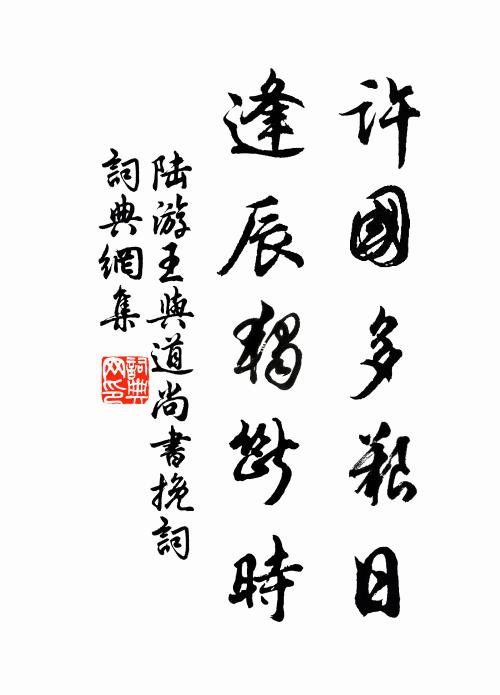 許國多艱日
逢辰獨斷時
陆游王與道尚書挽詞
詞典網集
詞典网印